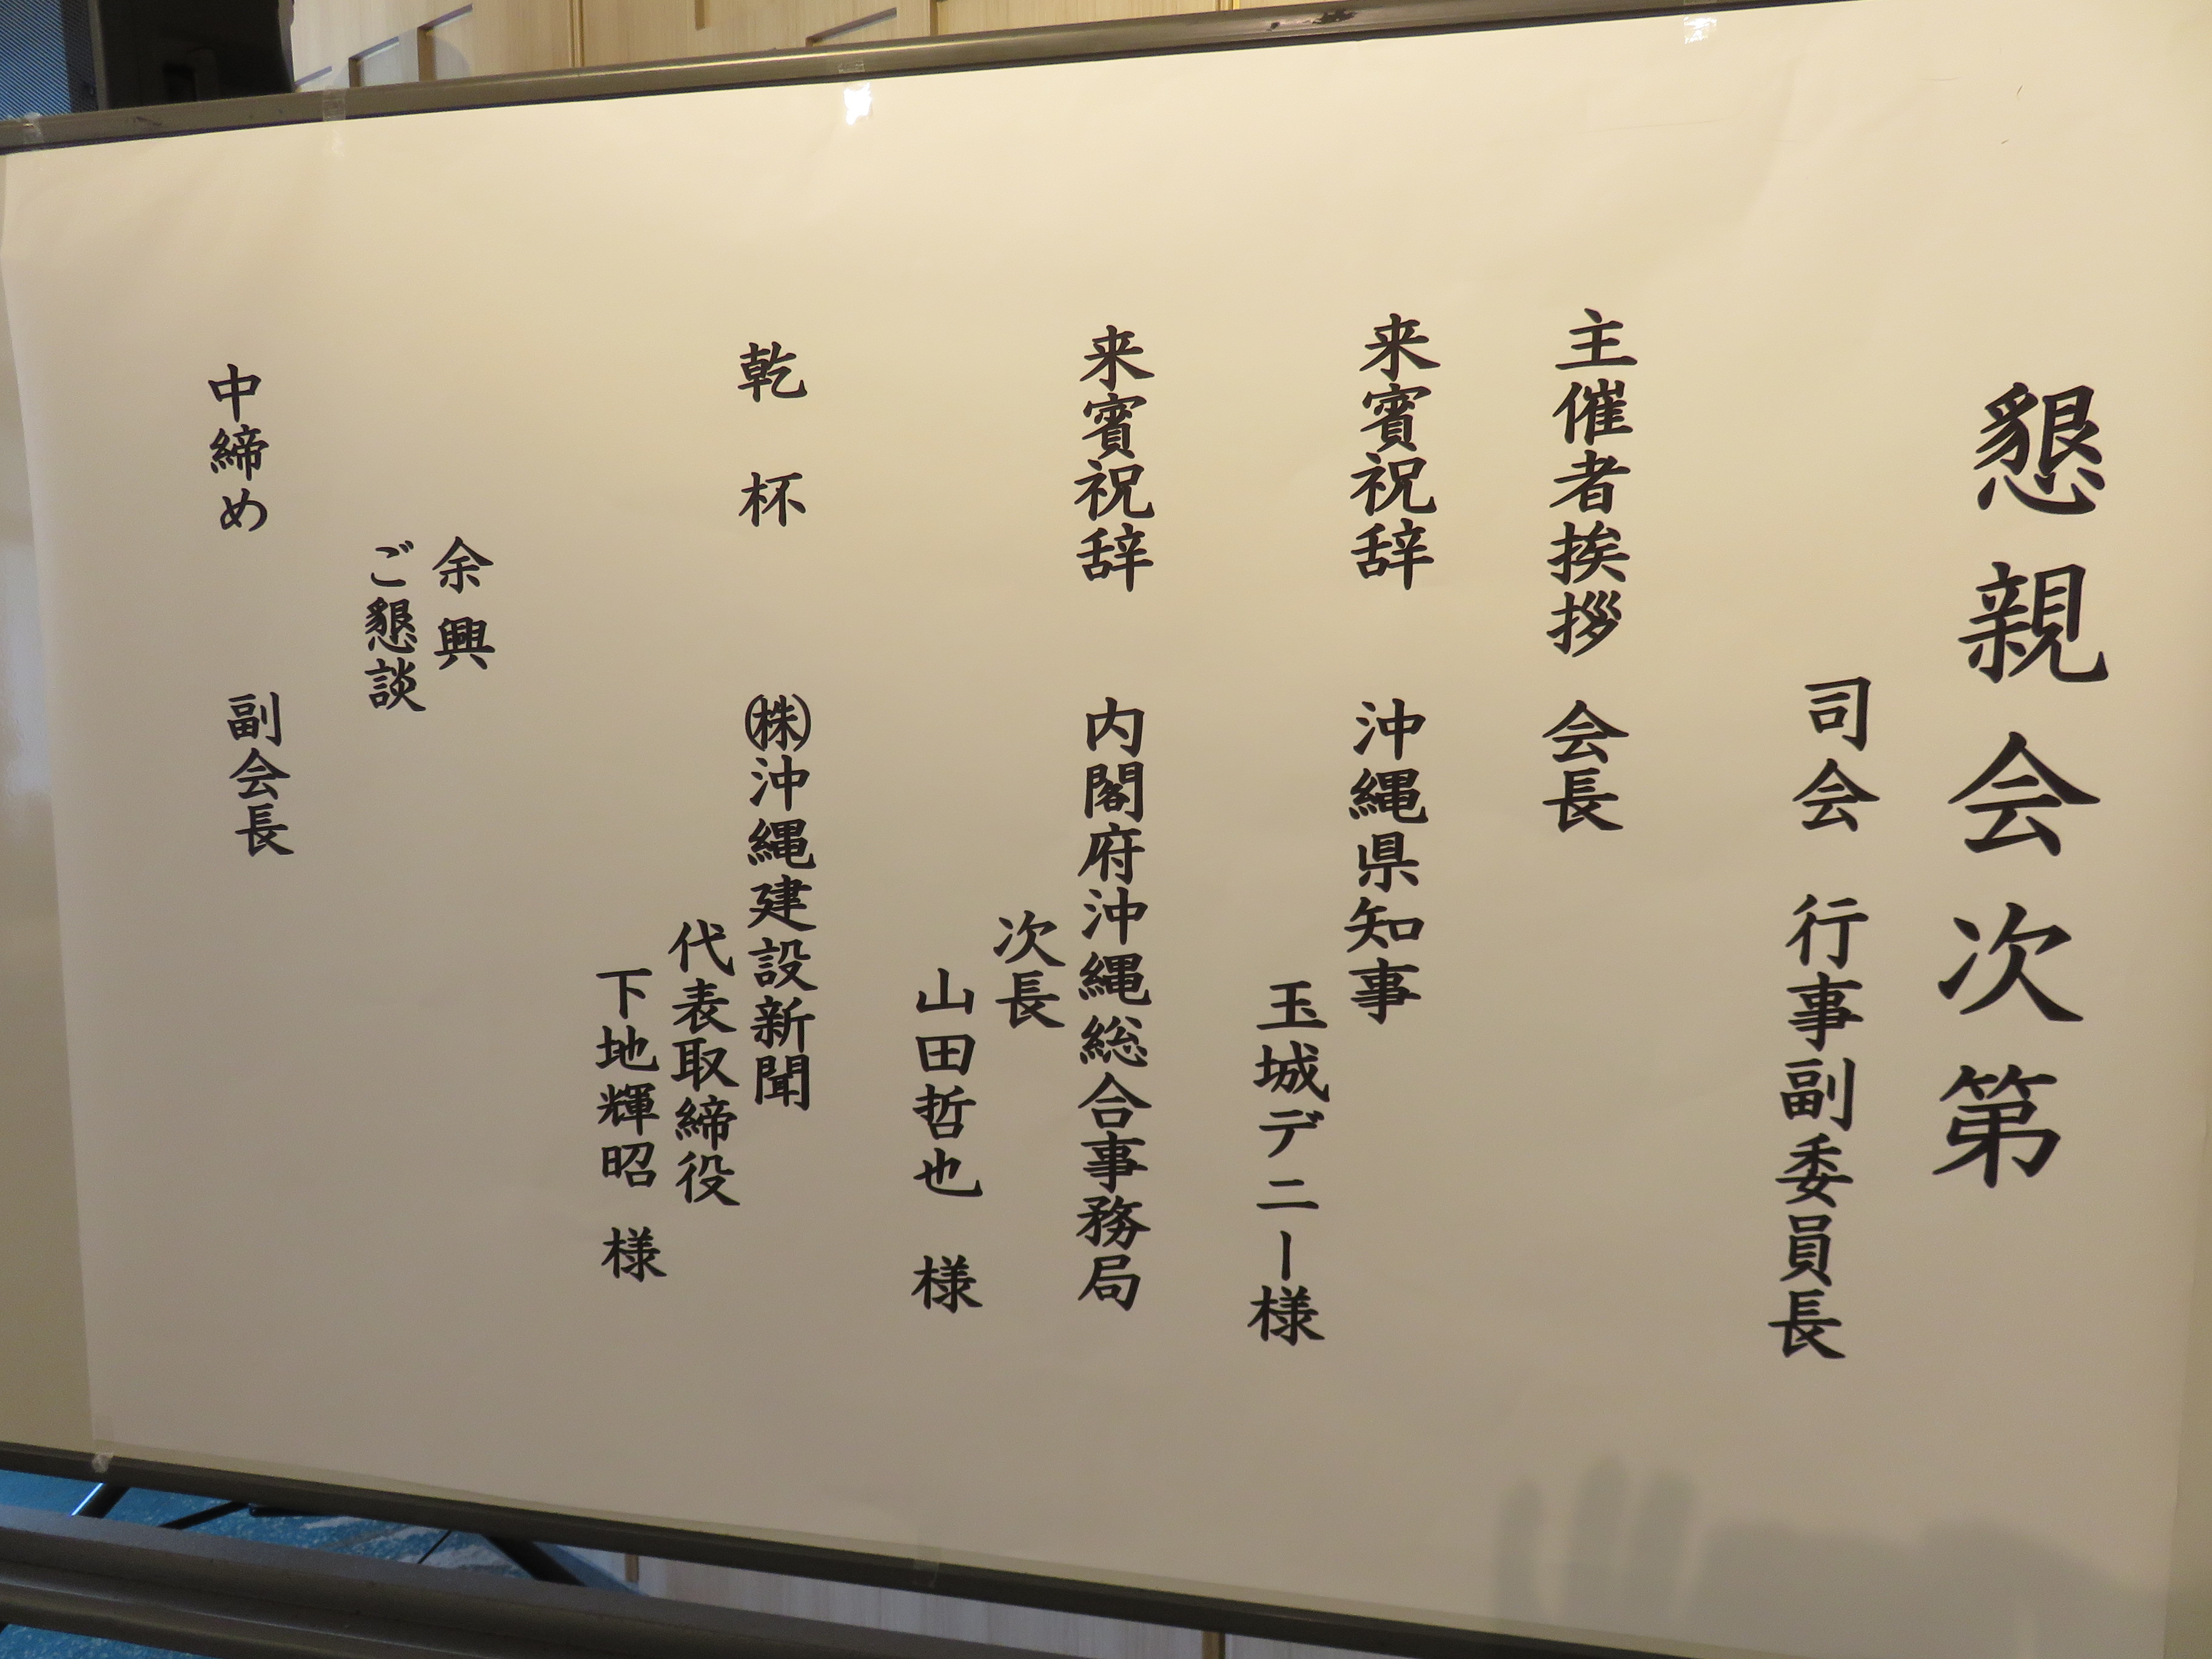 懇親会次第
司会 行事副委員長
主催者挨拶 会長
来賓祝辞 沖縄県知事
玉城デニー様
来賓祝辞 内閣府沖縄総合事務局
次長
山田哲也 様
乾 杯 ㈱沖縄建設新聞
代表取締役
下地輝昭 様
余興
ご懇談
中締め 副会長